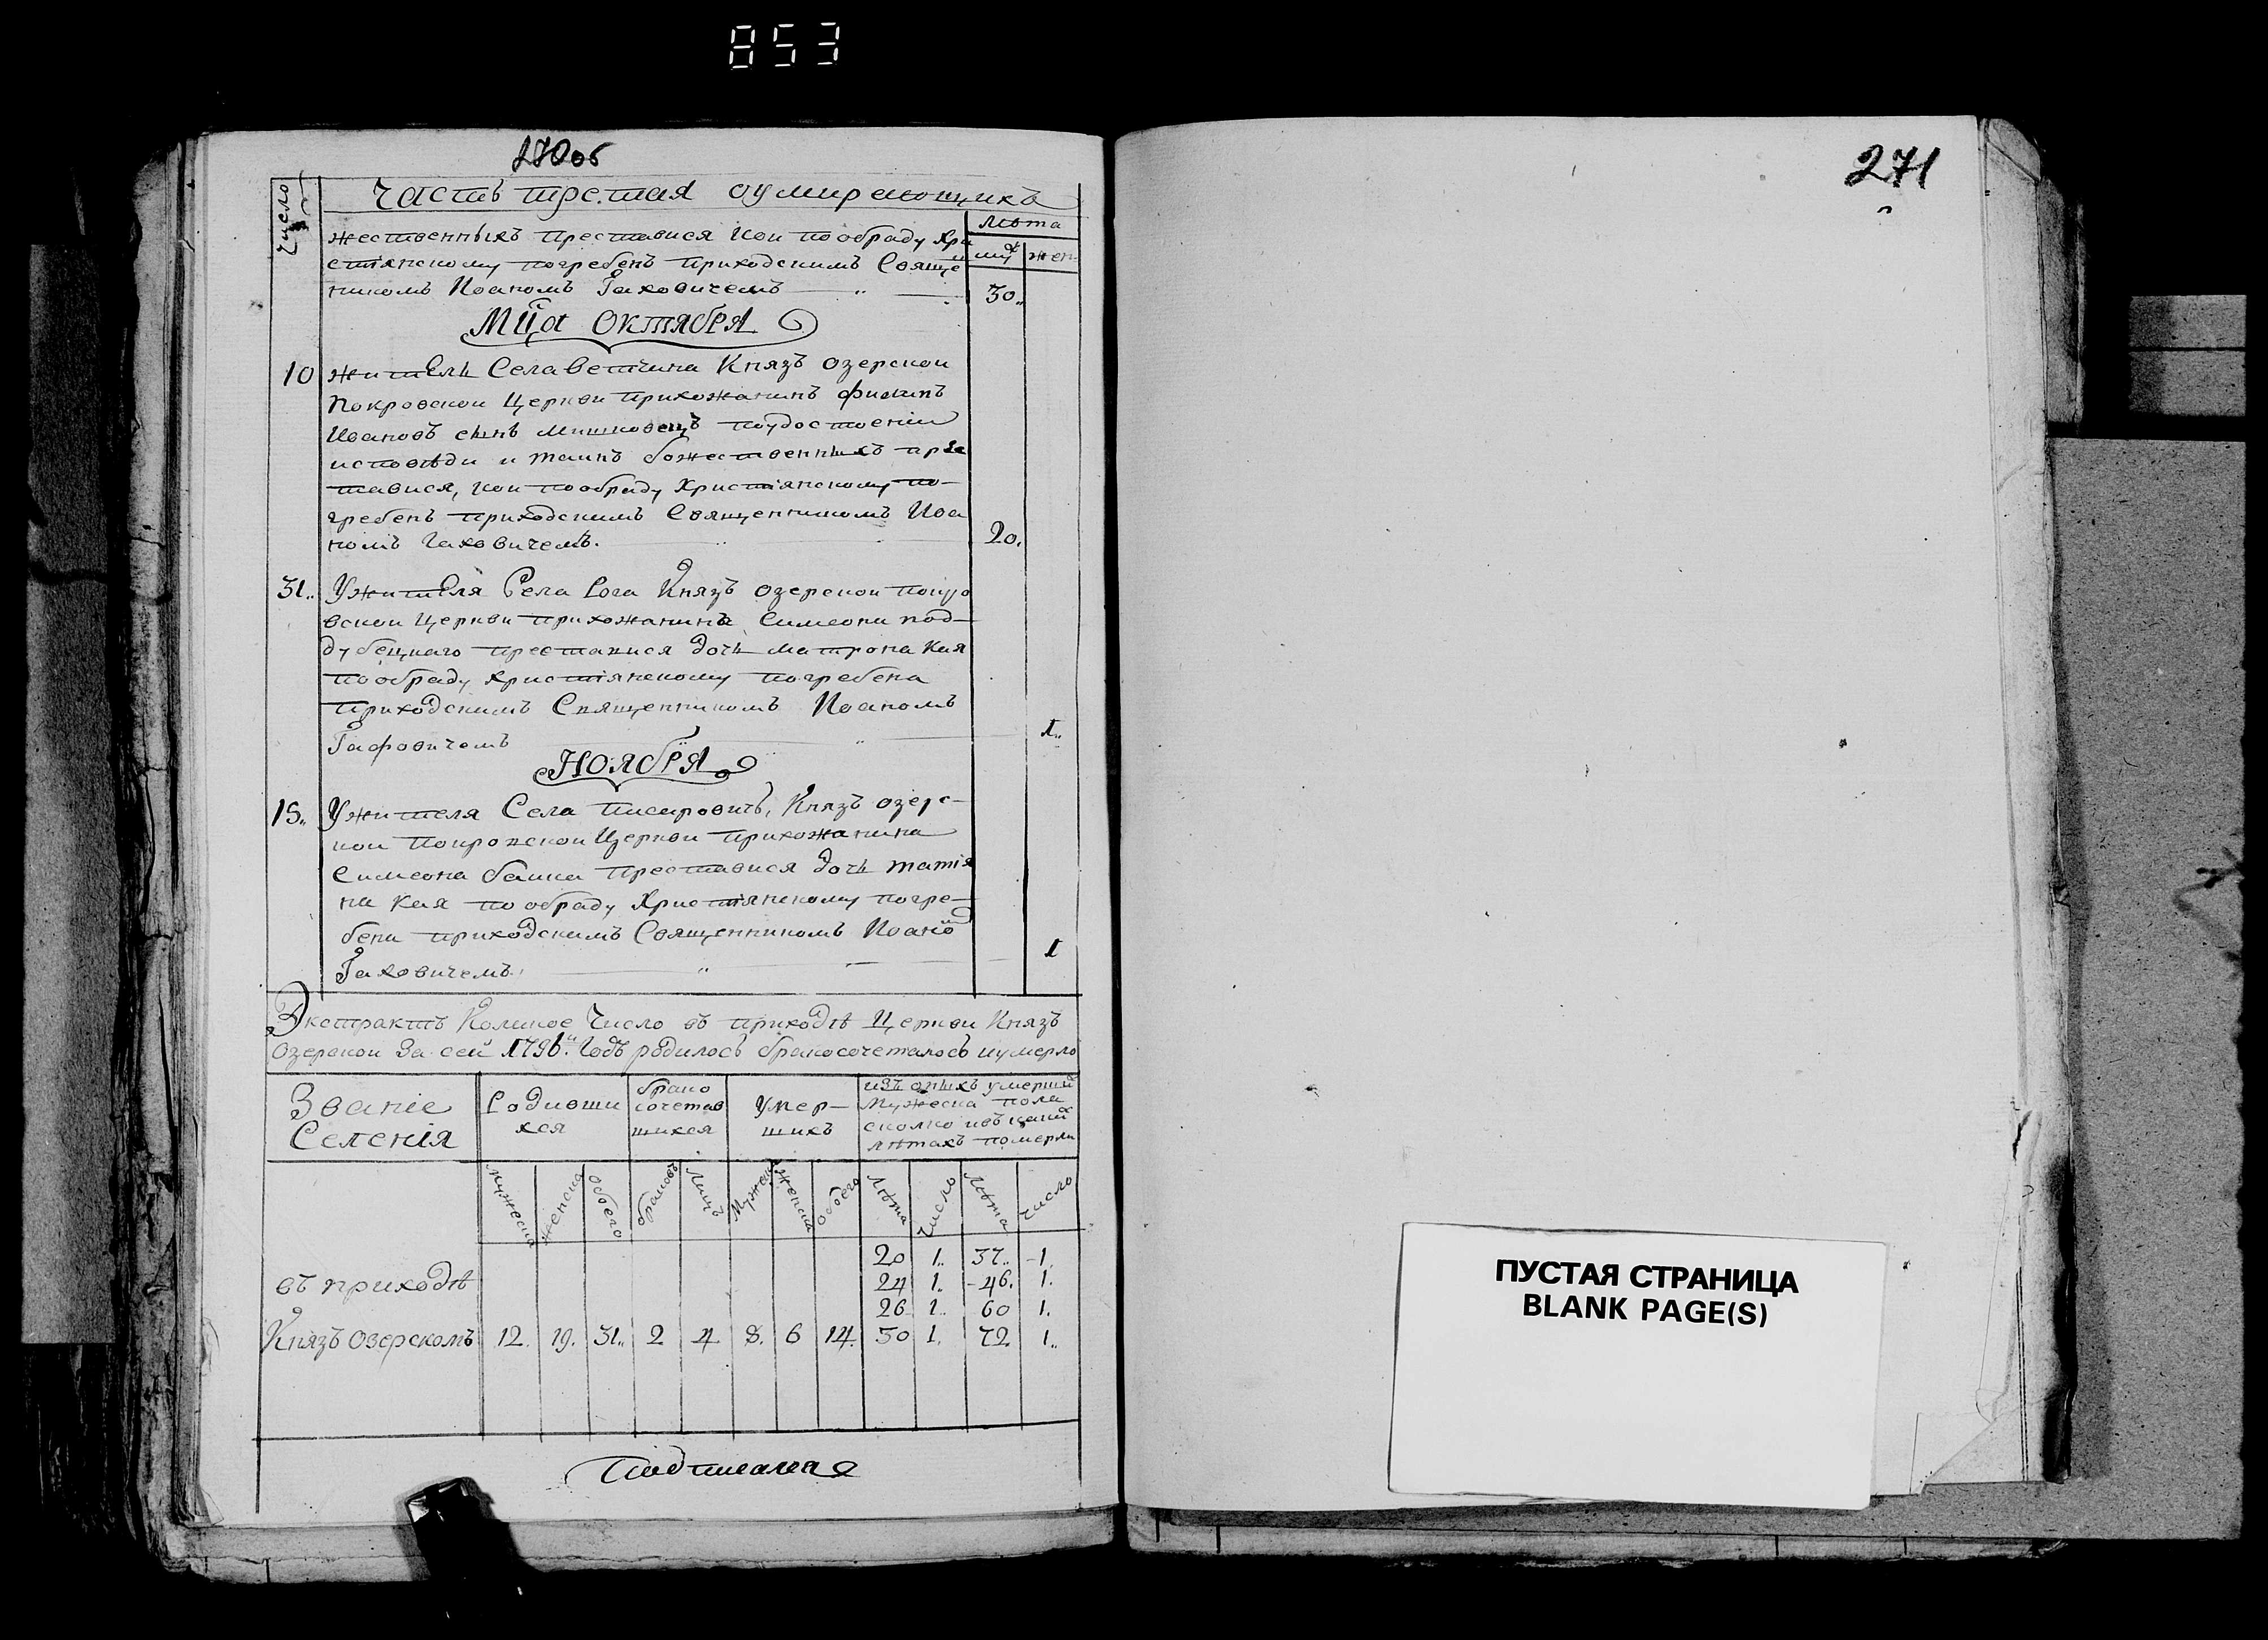 853
270об
Число
Часть третая оумирающихъ
Лѣта
муж жен
жественныхъ преставися кои пообраду Хри
стиянскому погребенъ приходскимъ Свяще
никомъ Иоаномъ Гаховичемъ 30.
Мца Октября
10 жителъ Села Ветчина Князъ Озерской
Покровской Церкви прихожанинъ Филипъ
Ивановъ сынъ Мишковецъ поудостоении
исповѣди и таинъ божественныхъ пре
тавися, кои пообраду Християнскому по-
гребенъ приходскимъ Священникомъ Иоа
номъ Гаховичемъ. 20.
31.. Ужителя Села Рога Князъ Озерской покро
вской Церкви прихожанина Симеона под-
дубецкаго преставися дочь Матрона Кая
пообраду християнскому погребена
приходскимъ Священникомъ Иоаномъ
Гаховичемъ 1..
Ноября
15.. Ужителя Села Писаровичъ, Князъ Озерс-
кои Покровской Церкви прихожанина
Симеона преставися дочь татия
на Кая по обраду Християнскому погре-
бена приходскимъ Священникомъ Иоано
Гаховичемъ. 1
Экстрактъ Коликое Число въ приходѣ Церкви Князъ
Озерской За сей 1796.й Годъ родилось бракосочеталось иумерло
Званіе
Селенія
Родивши
хся
брако
сочетав
шихся
Умер-
шихъ
изъ оныхъ умерших
Мужеска пола
сколко ивъ каких
лѣтахъ померли
мужеска женска обоего браковъ Лицъ Мужеска женска обоего Лѣта Число Лѣта Число
20 1.. 37.. 1.
въ приходѣ 24 1. 46. 1.
26 1.. 60 1.
Князъ Озерскомъ 12. 19. 31.. 2 4 8. 6 14. 30 1. 72. 1..
Подписаля
271
ПУСТАЯ СТРАНИЦА
BLANK PAGE(S)